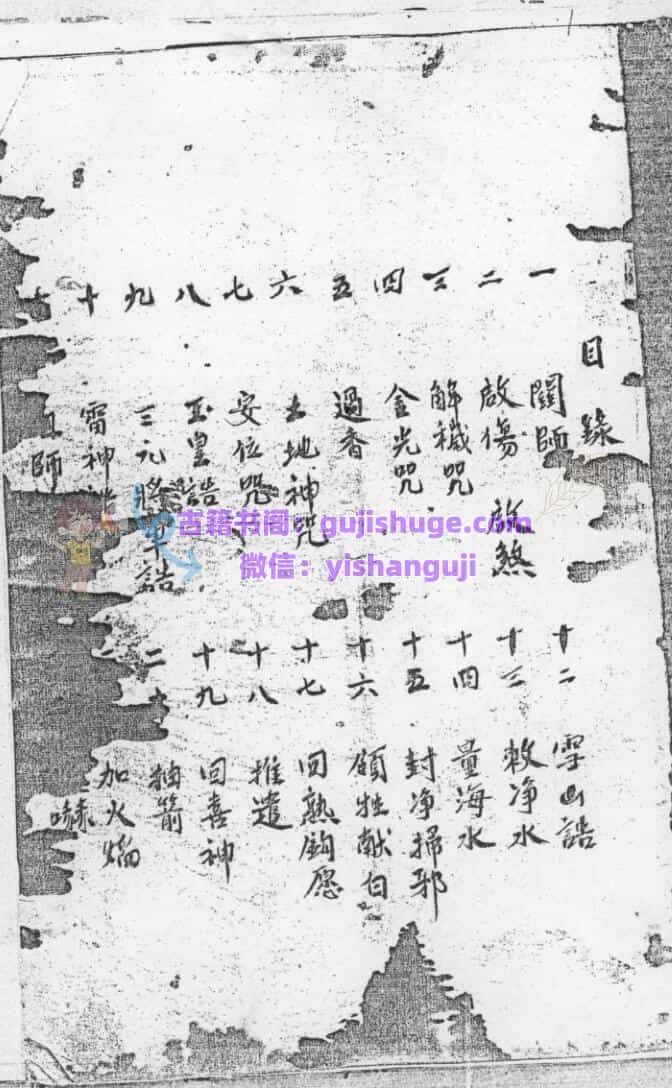 目錄
一 關師
二 啟傷 放煞
三 解穢咒
四 金光咒
五 過香
六 土地神咒
七 安位咒
八 玉皇誥
九 三元 誥
十 雷神
十 師
十二 雪山誥
十三 敕净水
十四 量海水
十五 封净掃邪
十六 領牲献白
十七 回熟鈎愿
十八 推遣
十九 回喜神
二十 抽箭
加火焰
古籍书阁：gujishuge.com
微信：yishanguji